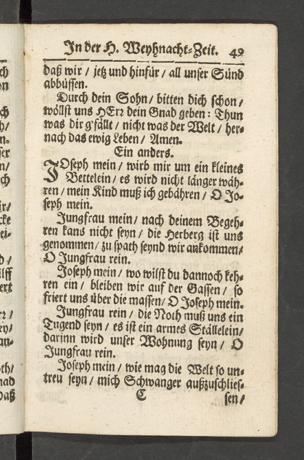 In der H. Weyhnacht-Zeit. 49
daß wir / jetz und hinfür / all unser Sünd
abbüssen.
Durch dein Sohn / bitten dich schon /
wöllst uns HErz dein Gnad geben: Thun
was dir g'fällt / nicht was der Welt / her-
nach das ewig Leben / Amen.
Ein anders.
JOseph mein / wird mir um ein kleines
Bettelein / es wird nicht länger wäh-
ren / mein Kind muß ich gebähren / O Jo-
seph mein.
Jungfrau mein / nach deinem Begeh-
ren kans nicht seyn / die Herberg ist uns
genommen / zu spath seynd wir ankommen /
O Jungfrau rein.
Joseph mein / wo wilst du dannoch keh-
ren ein / bleiben wir auf der Gassen / so
friert uns über die massen / O Joseph mein.
Jungfrau rein / die Noth muß uns ein
Tugend seyn / es ist ein armes Ställelein /
darinn wird unser Wohnung seyn / O
Jungfrau rein.
Joseph mein / wie mag die Welt so un-
treu seyn / mich Schwanger außzuschlies-
C sen /